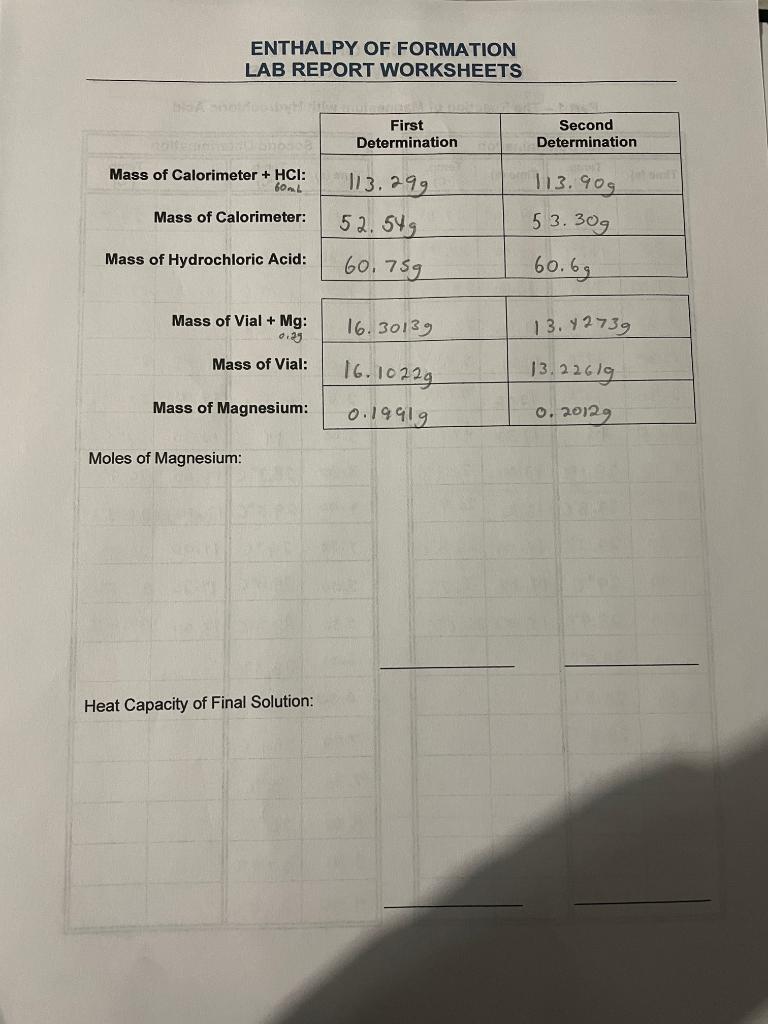 ENTHALPY OF FORMATION
LAB REPORT WORKSHEETS
First Determination Second Determination
Mass of Calorimeter + HCl: 113.29g 113.90g
60mL
Mass of Calorimeter: 52.54g 53.30g
Mass of Hydrochloric Acid: 60.75g 60.6g
Mass of Vial + Mg: 16.3013g 13.4273g
0.2g
Mass of Vial: 16.1022g 13.2261g
Mass of Magnesium: 0.1991g 0.2012g
Moles of Magnesium:
Heat Capacity of Final Solution: